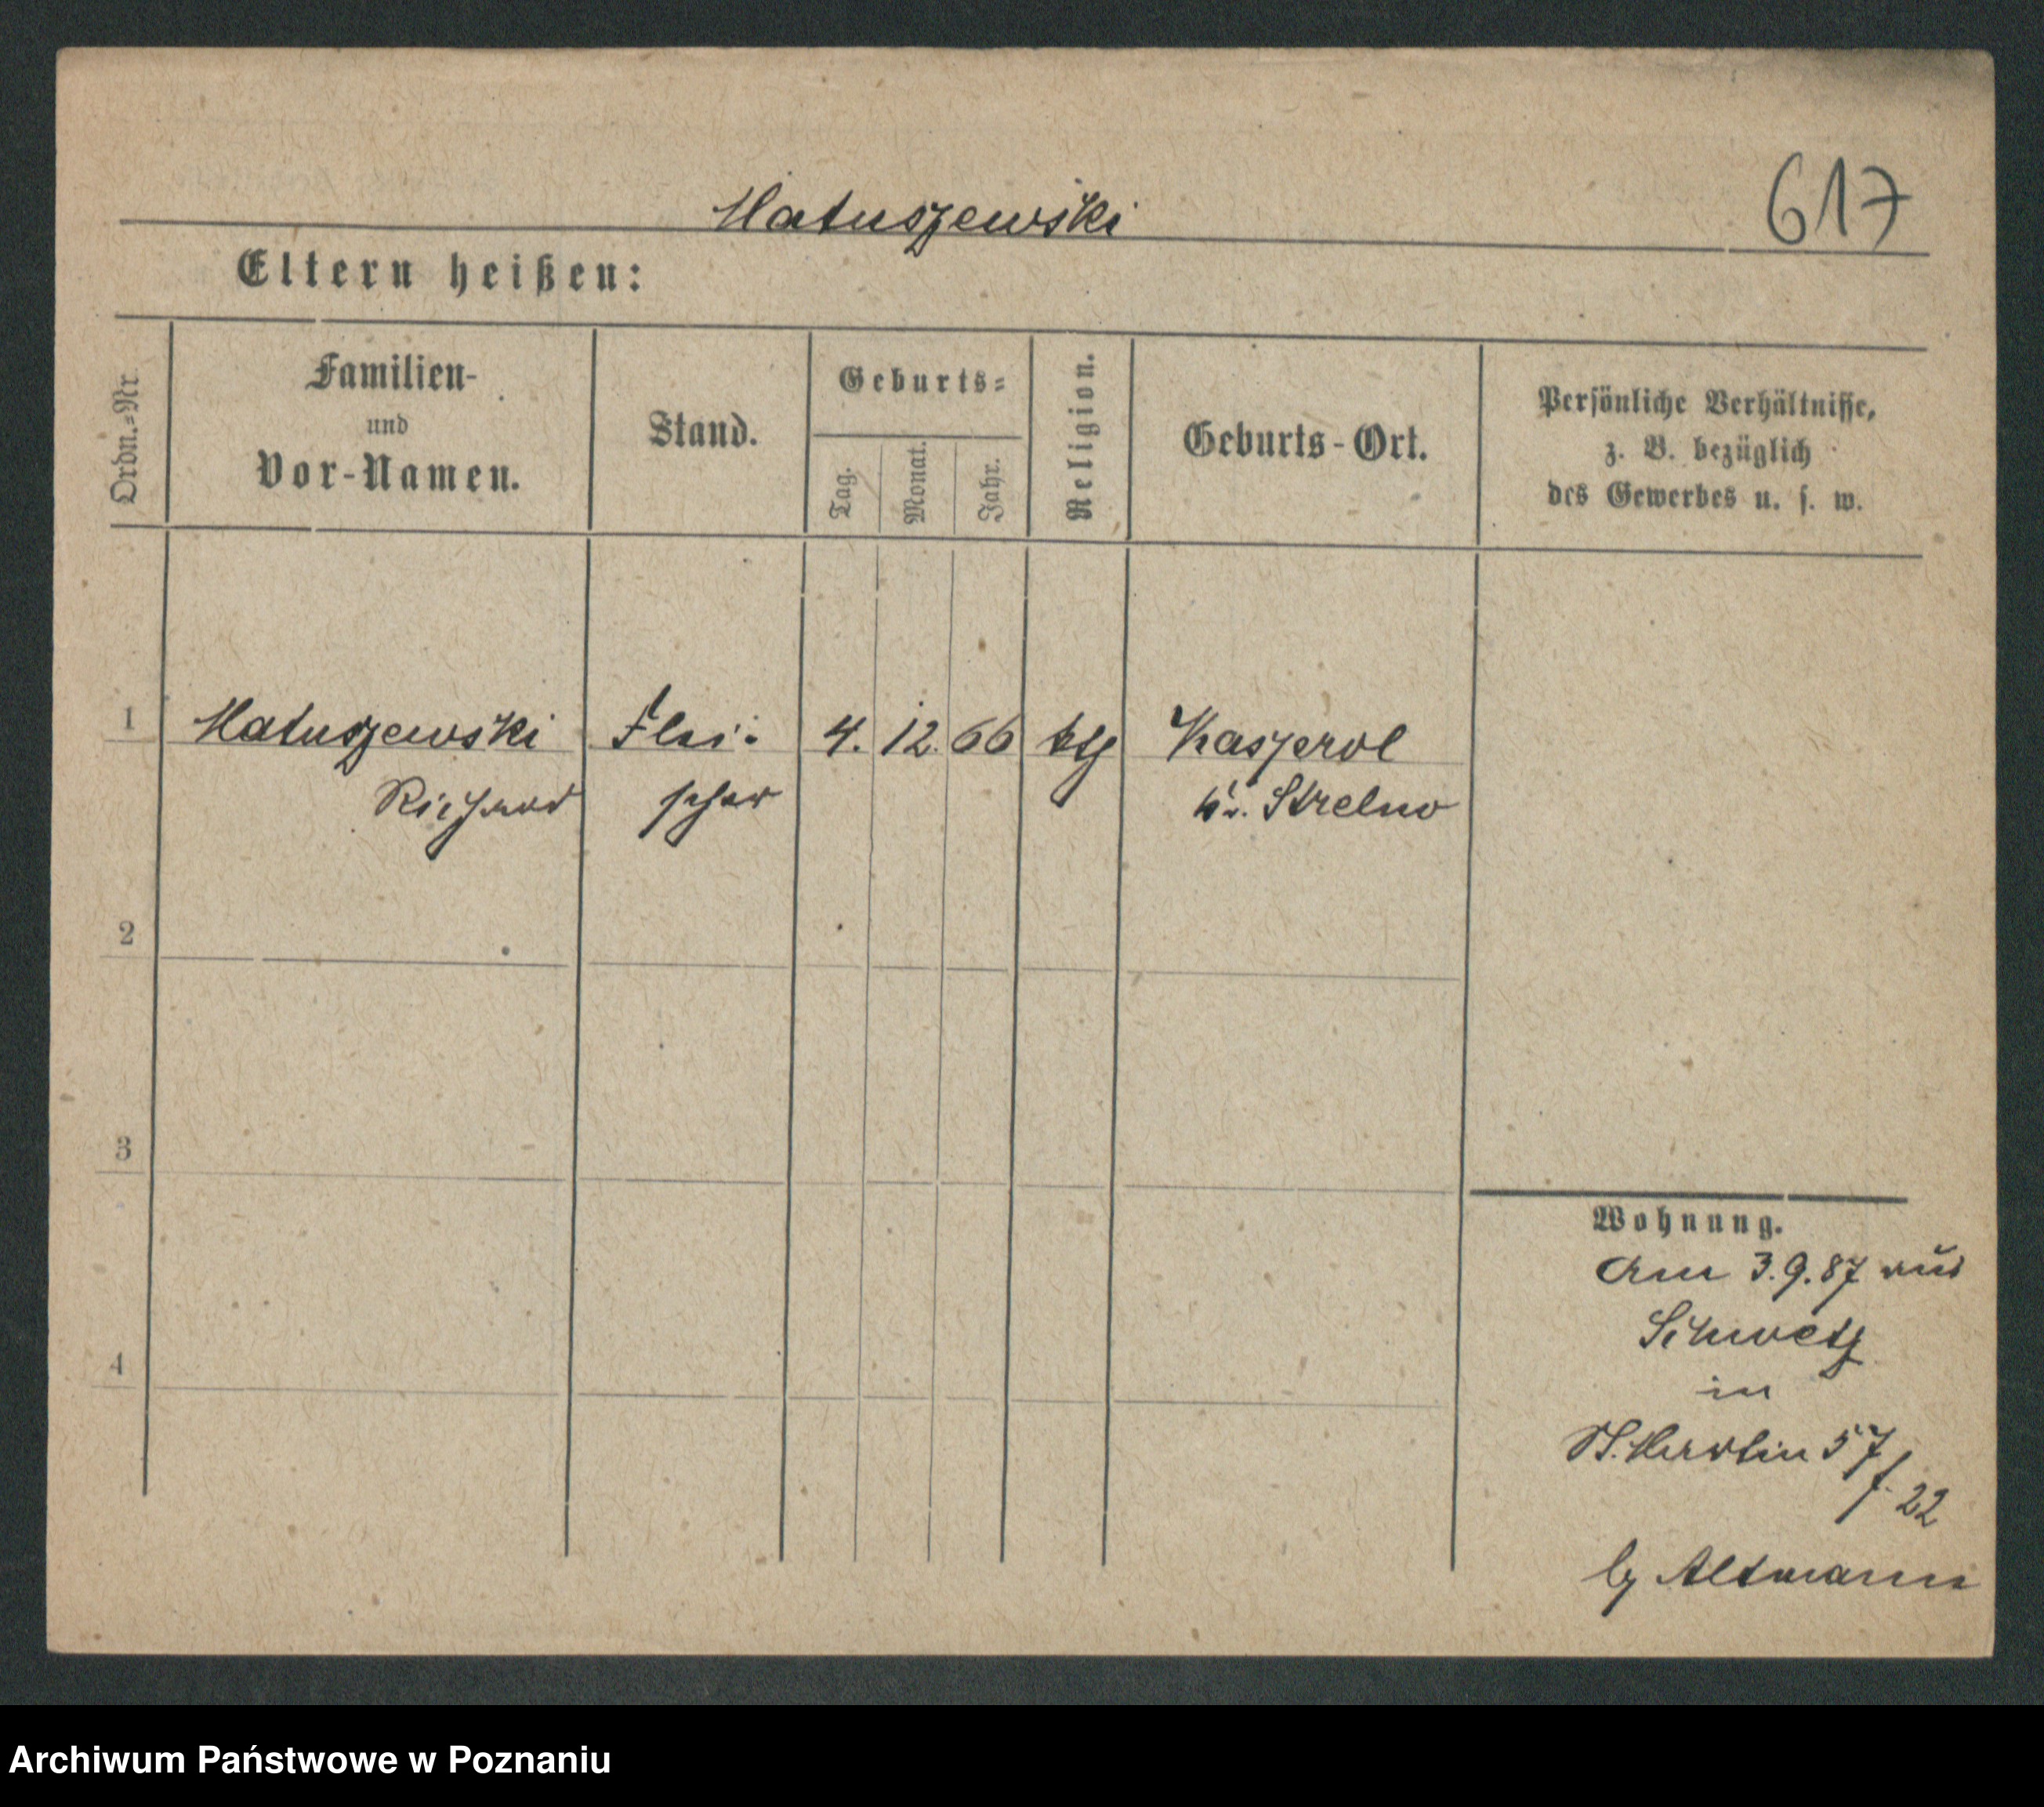 Matuszewski
617
Eltern heißen:
Ordn.-Nr.
Familien-
und
Vor-Namen.
Stand.
Geburts-
Tag.
Monat.
Jahr.
Religion.
Geburts-Ort.
Persönliche Verhältnisse,
z. B. bezüglich
des Gewerbes u. s. w.
1 Matuszewski Flei- 4. 12. 66 ktl Kaszerol
Richard scher Kr. Strelno
2
3
4
Wohnung.
Am 3.9.87 aus
Schwetz
in
St. Martin 57
/ 22
by Altmann
Archiwum Państwowe w Poznaniu